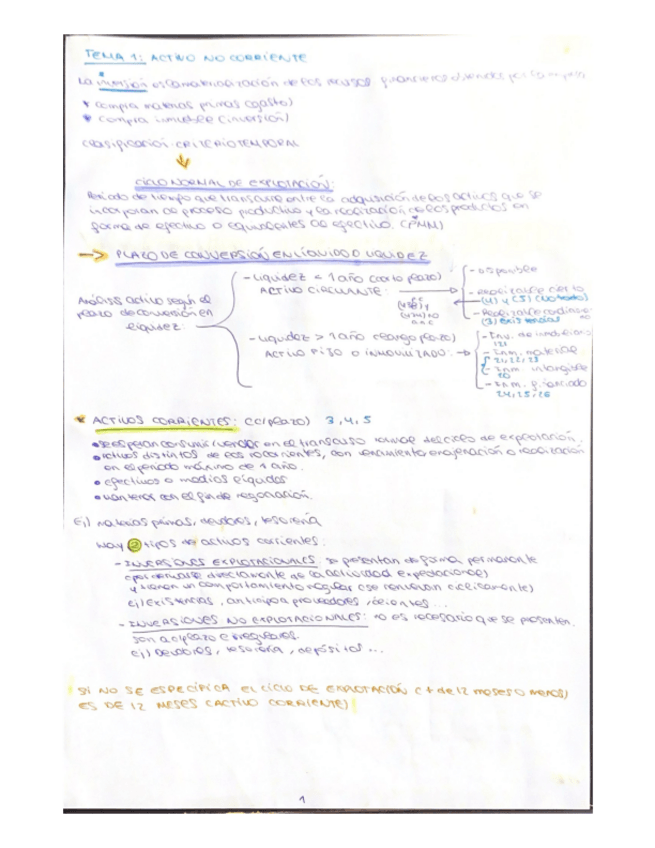 TEMA 1: ACTIVO NO CORRIENTE
La inversión es la materialización de los recursos financieros obtenidos por la empresa
* compra materias primas (gasto)
* compra inmueble (inversión)
Clasificación: CRITERIO TEMPORAL
CICLO NORMAL DE EXPLOTACIÓN:
Período de tiempo que transcurre entre la adquisición de los activos que se
incorporan al proceso productivo y la realización de los productos en
forma de efectivo o equivalentes al efectivo. (PMM)
→ PLAZO DE CONVERSIÓN EN LÍQUIDO O LIQUIDEZ
Análisis activo según el
plazo de conversión en
liquidez:
- Liquidez < 1 año (corto plazo)
ACTIVO CIRCULANTE:
- Disponible
- Realizable cierto
(4) y (5)
- Realizable condicionado
(3) Existencias
- Liquidez > 1 año (largo plazo)
ACTIVO FIJO O INMOVILIZADO: →
- Inv. inmobiliario
- Inm. material
21, 22, 23
- Inm intangible
20
- Inm. financiado
24, 25, 26
* ACTIVOS CORRIENTES: (c/plazo) 3, 4, 5
• se esperan consumir/vender en el transcurso normal del ciclo de explotación.
• activos distintos de los corrientes, con vencimiento enajenación o realización
en el período máximo de 1 año.
• efectivos o medios líquidos
• mantener con el fin de negociación.
Ej) materias primas, deudores, tesorería
Hay 2 tipos de activos corrientes:
- INVERSIONES EXPLOTACIONALES: se presentan de forma permanente
(por derivarse directamente de la actividad explotacional)
y tienen un comportamiento regular (se renuevan cíclicamente)
ej) Existencias, anticipo a proveedores, clientes...
- INVERSIONES NO EXPLOTACIONALES: no es necesario que se presenten.
son a c/plazo e irregulares.
ej) Deudores, tesorería, depósitos...
SI NO SE ESPECÍFICA EL CICLO DE EXPLOTACIÓN (+ de 12 meses o menos)
ES DE 12 MESES (ACTIVO CORRIENTE)
1